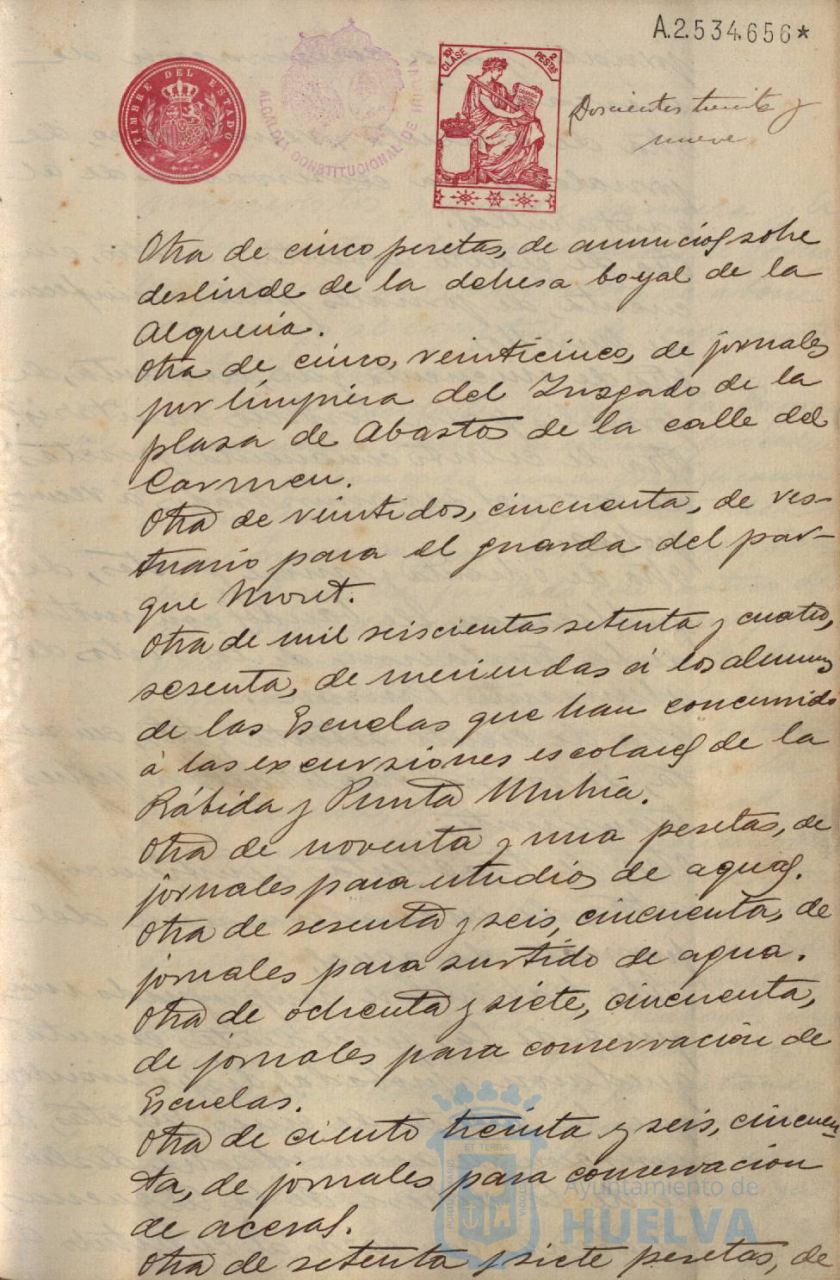 A.2.534.656*
TIMBRE DEL ESTADO
ALCALDIA CONSTITUCIONAL DE HUELVA
10ª CLASE 2 PESTAS
Doscientos treinta y
nueve
Otra de cinco pesetas, de anuncios sobre
deslinde de la dehesa boyal de la
Alquería.
Otra de cinco, veinticinco, de jornales
por limpieza del Juzgado de la
plaza de Abastos de la calle del
Carmen.
Otra de veintidos, cincuenta, de ves-
tuario para el guarda del par-
que Moret.
Otra de mil seiscientas setenta y cuatro,
sesenta, de meriendas á los alumnos
de las Escuelas que han concurrido
á las excursiones escolares de la
Rábida y Punta Umbría.
Otra de noventa y una pesetas, de
jornales para estudios de aguas.
Otra de sesenta y seis, cincuenta, de
jornales para surtido de agua.
Otra de ochenta y siete, cincuenta,
de jornales para conservación de
Escuelas.
Otra de ciento treinta y seis, cincuen-
ta, de jornales para conservación
de aceras.
Otra de setenta y siete pesetas, de
Ayuntamiento de
HUELVA